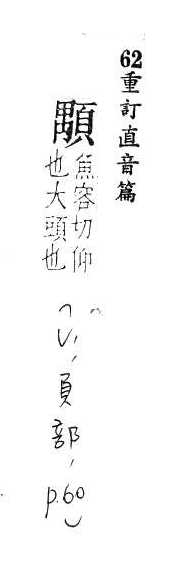 62重訂直音篇
顒
魚容切仰
也大頭也
(V、頁部、p.60)